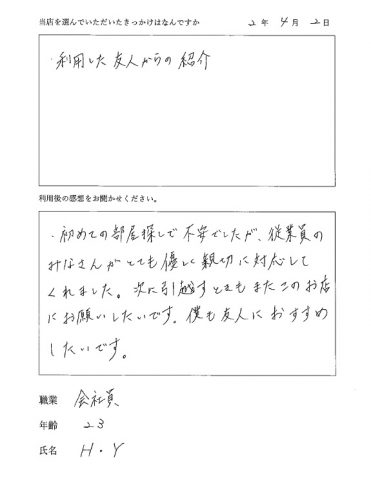 当店を選んでいただいたきっかけはなんですか 2年 4月 2日
・利用した友人からの紹介
利用後の感想をお聞かせください。
・初めての部屋探しで不安でしたが、従業員の
みなさんがとても優しく親切に対応して
くれました。次に引越すときもまたこのお店
にお願いしたいです。僕も友人におすすめ
したいです。
職業 会社員
年齢 23
氏名 H・Y